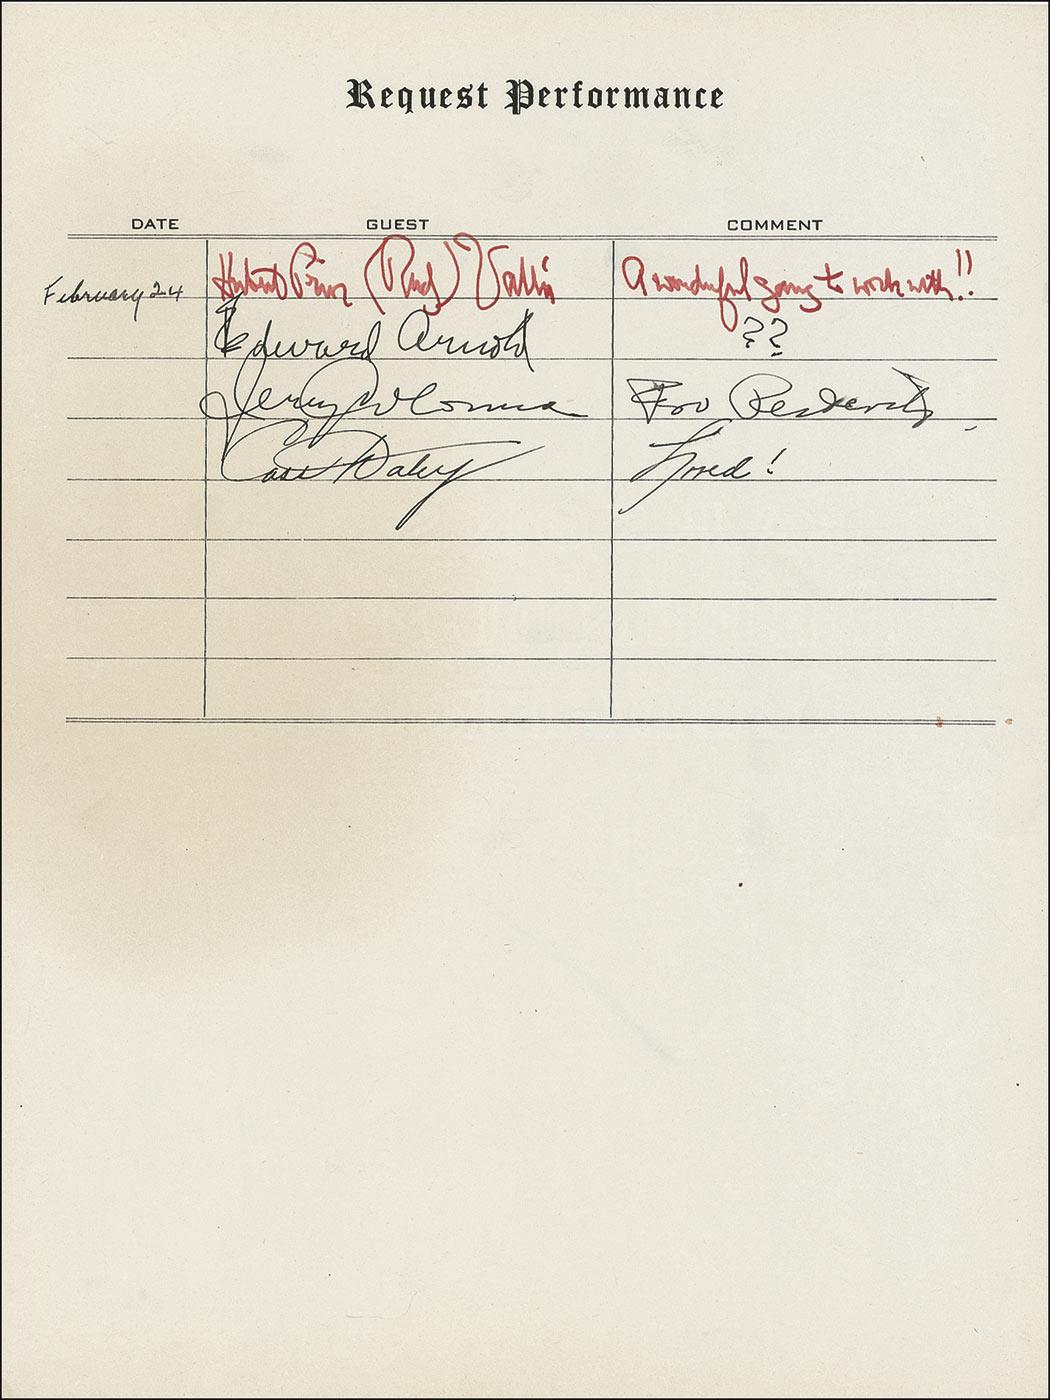 Request Performance
DATE GUEST COMMENT
February 24 Hubert Prior (Rudy) Vallée A wonderful gang to work with!!
Edward Arnold ??
Jerry Colonna For Posterity
Cass Daley Loved!